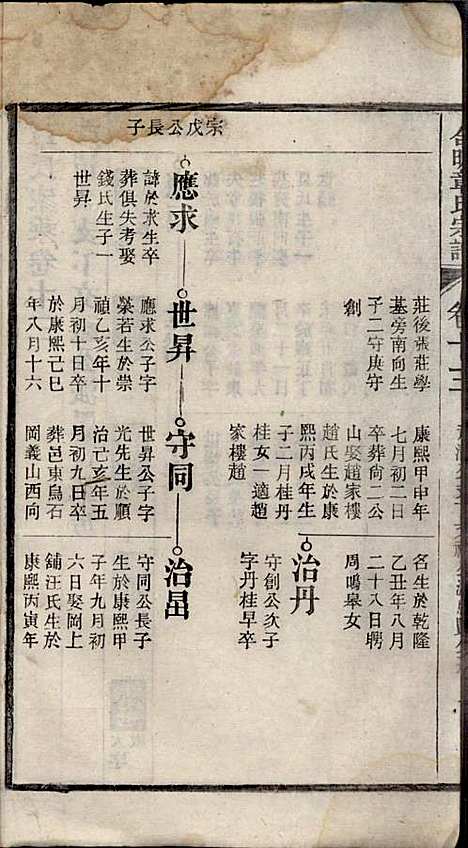 會暨章氏宗譜
卷十三
莊後張莊學
基旁南向生
子二守庚守
創
康熙甲申年
七月初二日
卒葬尙二公
山娶趙家樓
趙氏生於康
熙丙戌年生
子二月桂丹
桂女一適趙
家樓趙
名生於乾隆
乙丑年八月
二十八日聘
周鳴皋女
治丹
守創公次子
字丹桂早卒
宗戊公長子
應求
諱於求生卒
葬俱失考娶
錢氏生子一
世昇
世昇
應求公子字
榮若生於崇
禎乙亥年十
月初十日卒
於康熙己巳
年八月十六
守同
世昇公子字
光先生於順
治己亥年五
月初九日卒
葬邑東烏石
岡義山西向
治昌
守同公長子
生於康熙甲
子年九月初
六日娶岡上
舖汪氏生於
康熙丙寅年